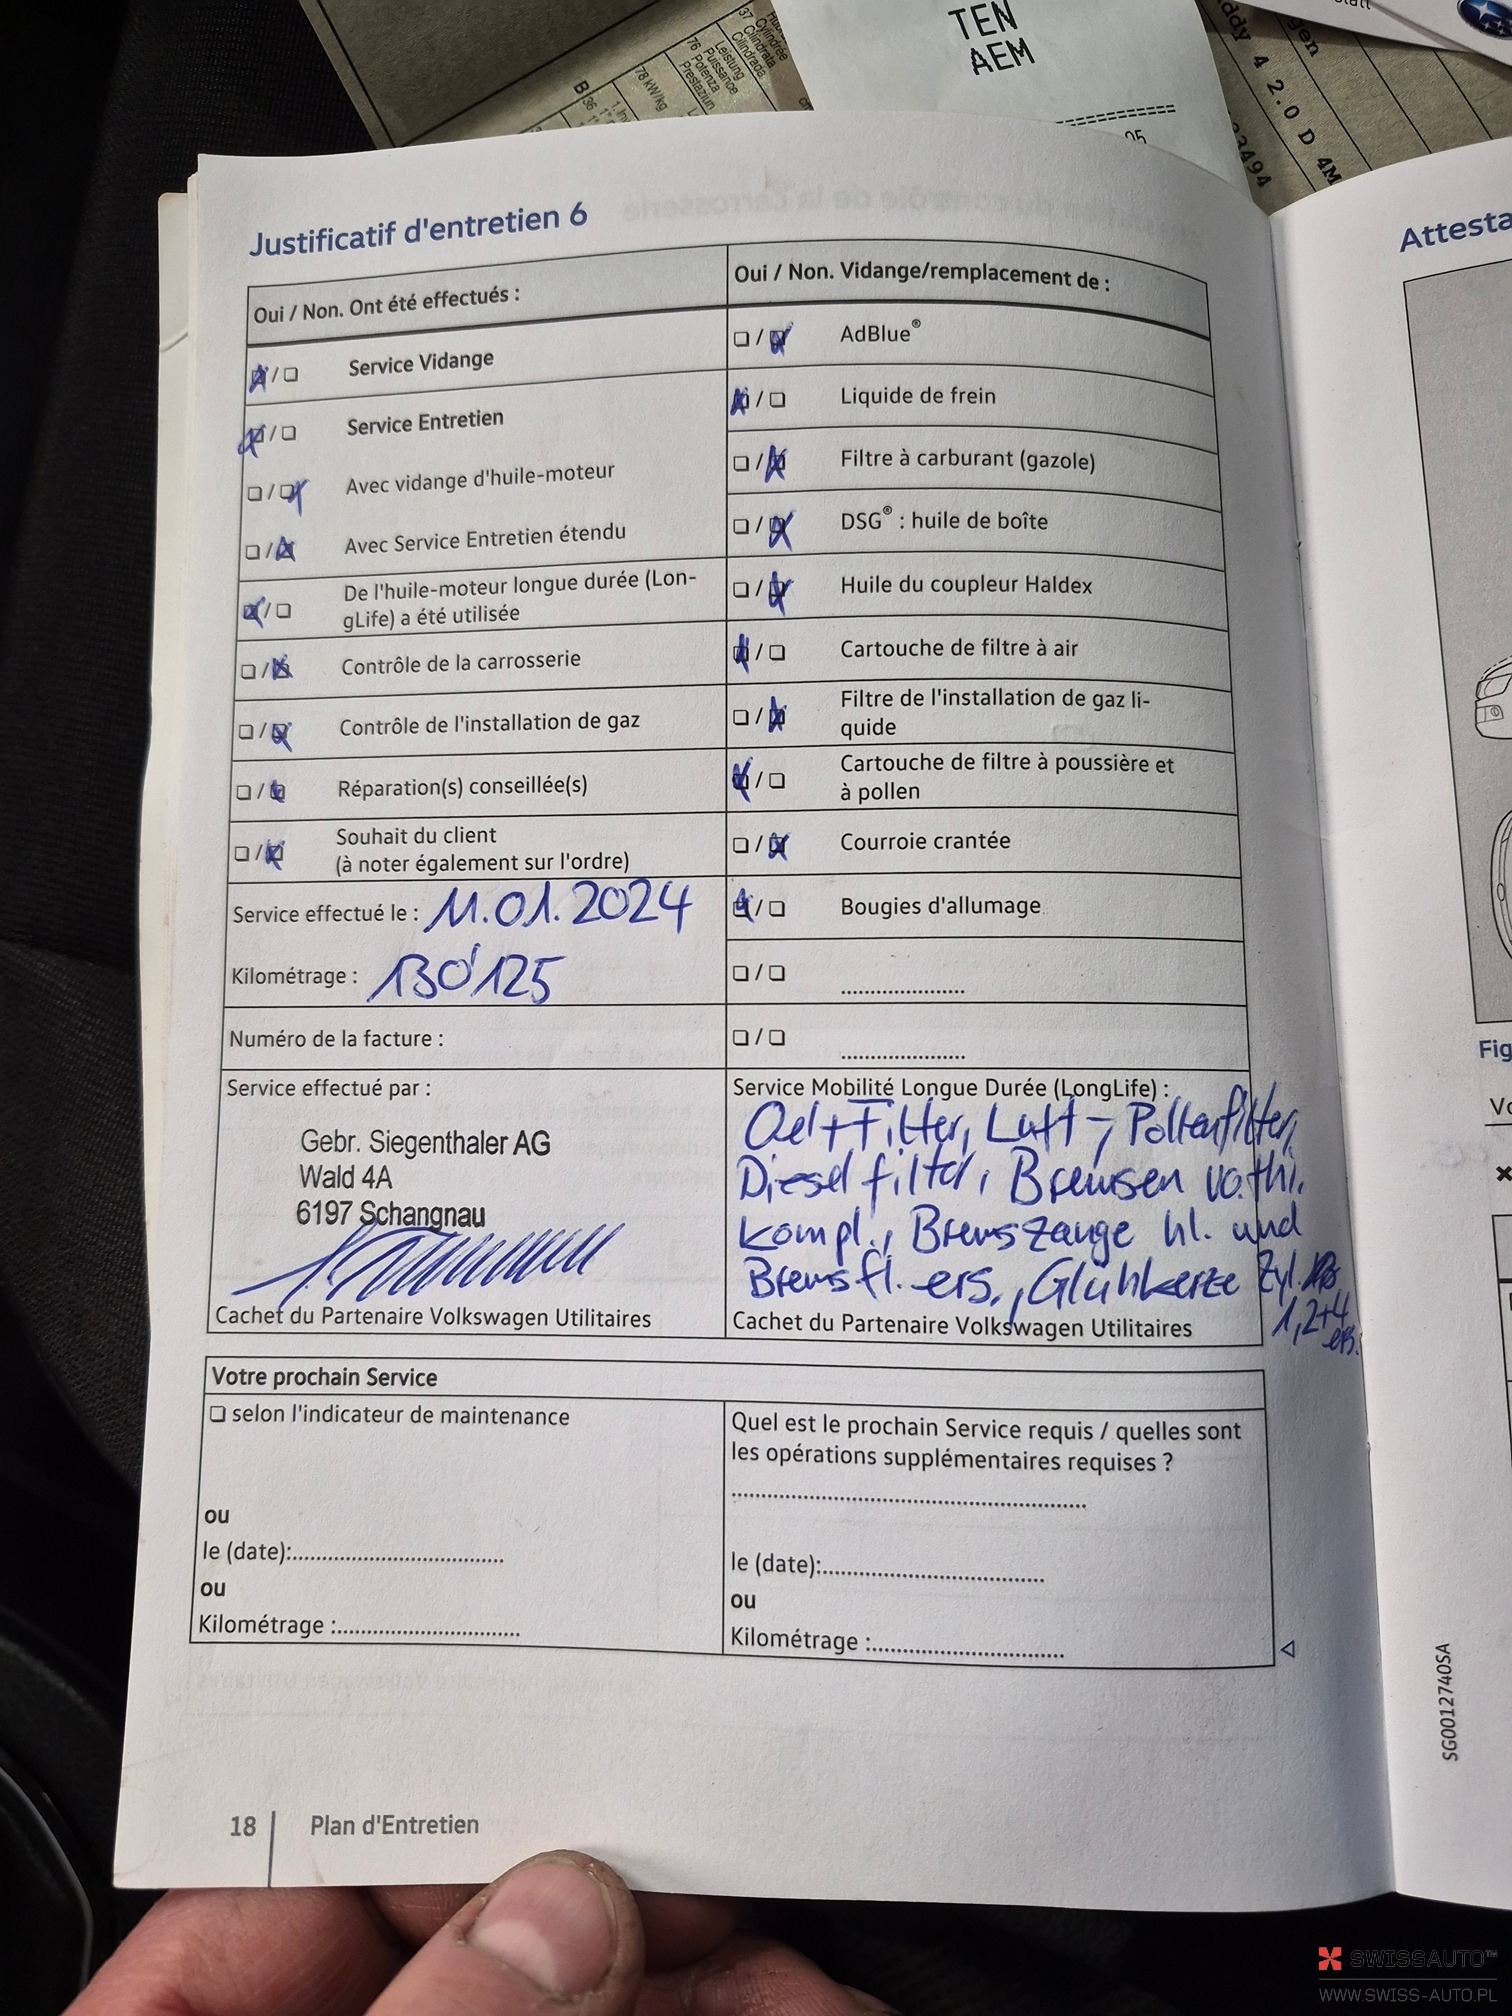 TEN
AEM
Hub
Cylindrée
37 Cilindrata
Cilindrada
Leistung
Puissance
76 Potenza
Prestaziun
78 kW/kg
B
36
05
ddy 4 2.0 D 4M
gen
3494
Justificatif d'entretien 6
Attesta
Oui / Non. Ont été effectués :
Oui / Non. Vidange/remplacement de :
❏ / ❏ Service Vidange
❏ / ❏ AdBlue®
❏ / ❏ Service Entretien
❏ / ❏ Liquide de frein
❏ / ❏ Avec vidange d'huile-moteur
❏ / ❏ Filtre à carburant (gazole)
❏ / ❏ Avec Service Entretien étendu
❏ / ❏ DSG® : huile de boîte
❏ / ❏ De l'huile-moteur longue durée (Lon-
gLife) a été utilisée
❏ / ❏ Huile du coupleur Haldex
❏ / ❏ Contrôle de la carrosserie
❏ / ❏ Cartouche de filtre à air
❏ / ❏ Contrôle de l'installation de gaz
❏ / ❏ Filtre de l'installation de gaz li-
quide
❏ / ❏ Réparation(s) conseillée(s)
❏ / ❏ Cartouche de filtre à poussière et
à pollen
❏ / ❏ Souhait du client
(à noter également sur l'ordre)
❏ / ❏ Courroie crantée
Service effectué le : 11.01.2024
❏ / ❏ Bougies d'allumage
Kilométrage : 130'125
❏ / ❏ ......................
Numéro de la facture :
❏ / ❏ ......................
Service effectué par :
Gebr. Siegenthaler AG
Wald 4A
6197 Schangnau
Cachet du Partenaire Volkswagen Utilitaires
Service Mobilité Longue Durée (LongLife) :
Oel + Filter, Luft-, Pollenfilter,
Dieselfilter, Bremsen vo.+hi.
kompl., Bremszange hl. und
Bremsfl. ers., Glühkerze Zyl.
1,2+4
ers.
Cachet du Partenaire Volkswagen Utilitaires
Fig
Vo
Votre prochain Service
❏ selon l'indicateur de maintenance
ou
le (date):....................................
ou
Kilométrage :...............................
Quel est le prochain Service requis / quelles sont
les opérations supplémentaires requises ?
............................................................
le (date):......................................
ou
Kilométrage :.................................
SG0012740SA
18 Plan d'Entretien
SWISSAUTO™
WWW.SWISS-AUTO.PL